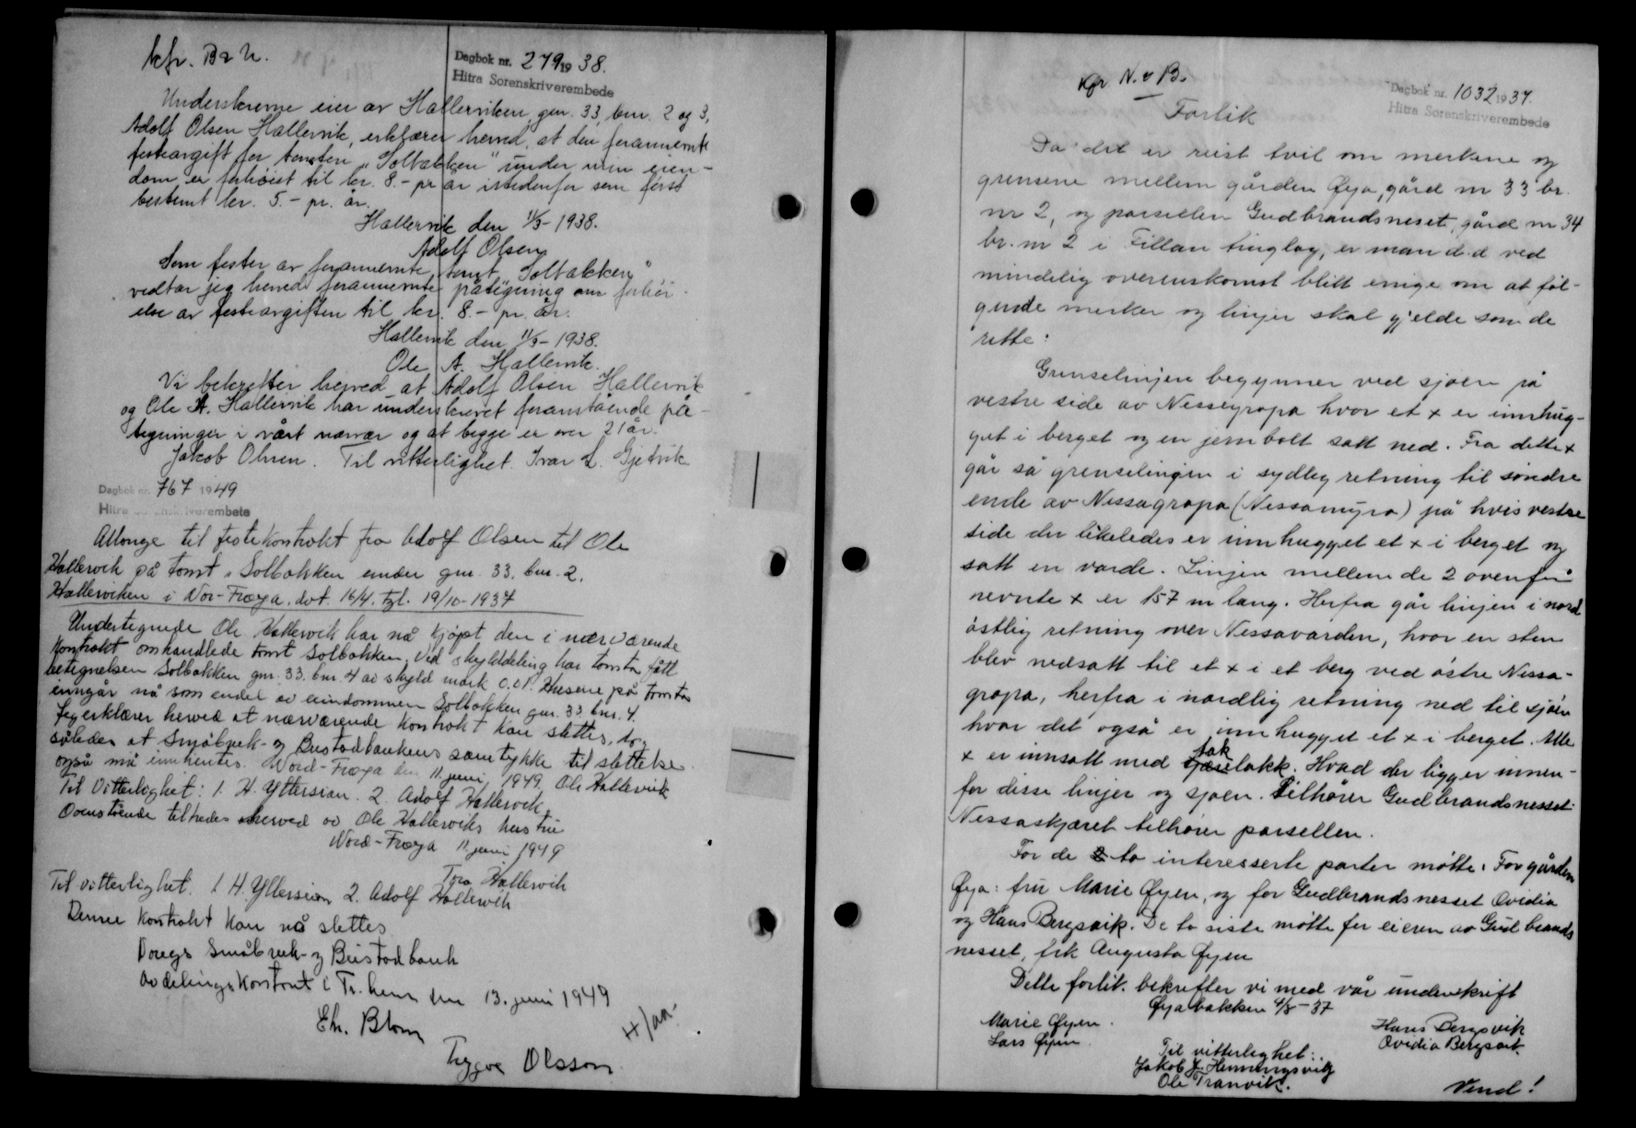 kfr. B & N.
Dagbok nr. 279 19 38.
Hitra Sorenskriverembede
Underskrevne eier av Hallerviken, gnr. 33, bnr. 2 og 3,
Adolf Olsen Hallervik, erklærer herved, at den forannevnte
festeavgift for tomten "Solbakken" under min eien-
dom er forhøiet til kr. 8.- pr år istedenfor som først
bestemt kr. 5.- pr. år.
Hallervik den 1/3- 1938.
Adolf Olsen
Som fester av forannevnte tomt "Solbakken"
vedtar jeg herved forannevnte påtegning om forhøi-
else av festeavgiften til kr. 8.- pr. år.
Hallervik den 1/3- 1938.
Ole A. Hallervik.
Vi bekrefter herved at Adolf Olsen Hallervik
og Ole A. Hallervik har underskrevet foranstående på-
tegninger i vårt nærvær og at begge er over 21 år.
Jakob Olsen. Til vitterlighet. Ivar L. Gjetvik
Dagbok nr. 767 1949
Hitra Sorenskriverembete
Allonge til festekontrakt fra Adolf Olsen til Ole
Hallervik på tomt "Solbakken under gnr. 33. bnr. 2.
Hallerviken i Nor-Frøya. dat. 16/4. tgl. 19/10-1934
Undertegnede Ole Hallervik har nå kjøpt den i nærværende
kontrakt omhandlede tomt Solbakken. Ved skylddeling har tomten fått
betegnelsen Solbakken gnr. 33. bnr. 4 av skyld mark 0.01. Husene på tomten
inngår nå som endel av eiendommen Solbakken gnr. 33 bnr. 4.
Jeg erklærer herved at nærværende kontrakt kan slettes, dog
således at Småbruk- og Bustadbankens samtykke til slettelse
også må innhentes. Nord-Frøya den 11 juni 1949 Ole Hallervik
Til Vitterlighet: 1. H. Yttersian. 2. Adolf Hallervik.
Ovenstående tiltredes herved av Ole Hallerviks hustru
Nord-Frøya 11 juni 1949
Tora Hallervik
Til vitterlighet. 1 H. Yttersian 2. Adolf Hallervik
Denne kontrakt kan nå slettes
Noregs Småbruk- og Bustadbank
Avdelingskontoret i Tr.heim den 13. juni 1949
Eh. Blom
Trygve Olsson
H/aa.
Kfr N. & B.
Dagbok nr. 1032 1937.
Hitra Sorenskriverembede
Forlik
Da det er reist tvil om merkene og
grensene mellem gården Øya, gård nr 33 br.
nr 2, og parsellen Gudbrandsneset, gård nr 34
br. nr 2 i Fillan tinglag, er man d.d ved
mindelig overenskomst blitt enige om at føl-
gende merker og linjer skal gjelde som de
rette:
Grenselinjen begynner ved sjøen på
vestre side av Nessegropa hvor et x er innhug-
get i berget og en jernbolt satt ned. Fra dette x
går så grenselinjen i sydlig retning til søndre
ende av Nessagropa (Nessamyra) på hvis vestre
side der likeledes er innhugget et x i berget og
satt en varde. Linjen mellem de 2 ovenfor
nevnte x er 157 m lang. Herfra går linjen i nord
østlig retning over Nessavarden, hvor en sten
blev nedsatt til et x i et berg ved østre Nessa-
gropa, herfra i nordlig retning ned til sjøen
hvor det også er innhugget et x i berget. Alle
tak
x er innsatt med tjærelakk. Hvad der ligger innen-
for disse linjer og sjøen. Tilhører Gudbrandsnesset.
Nessaskjæret tilhører parsellen.
For de 2 to interesserte parter møtte: For gården
Øya: fru Marie Øyen, og for Gudbrandsnesset Ovidia
og Hans Bergsvik. De to siste møtte for eieren av Gudbrands
nesset, frk Augusta Øyen
Dette forlik. bekrefter vi med vår underskrift
Øyabakken 4/8-37
Marie Øyen.
Lars Øyen.
Hans Bergsvik
Ovedia Bergsvik.
Til vitterlighet:
Jakob J. Henningsvik
Ole Tranvik.
Vend!